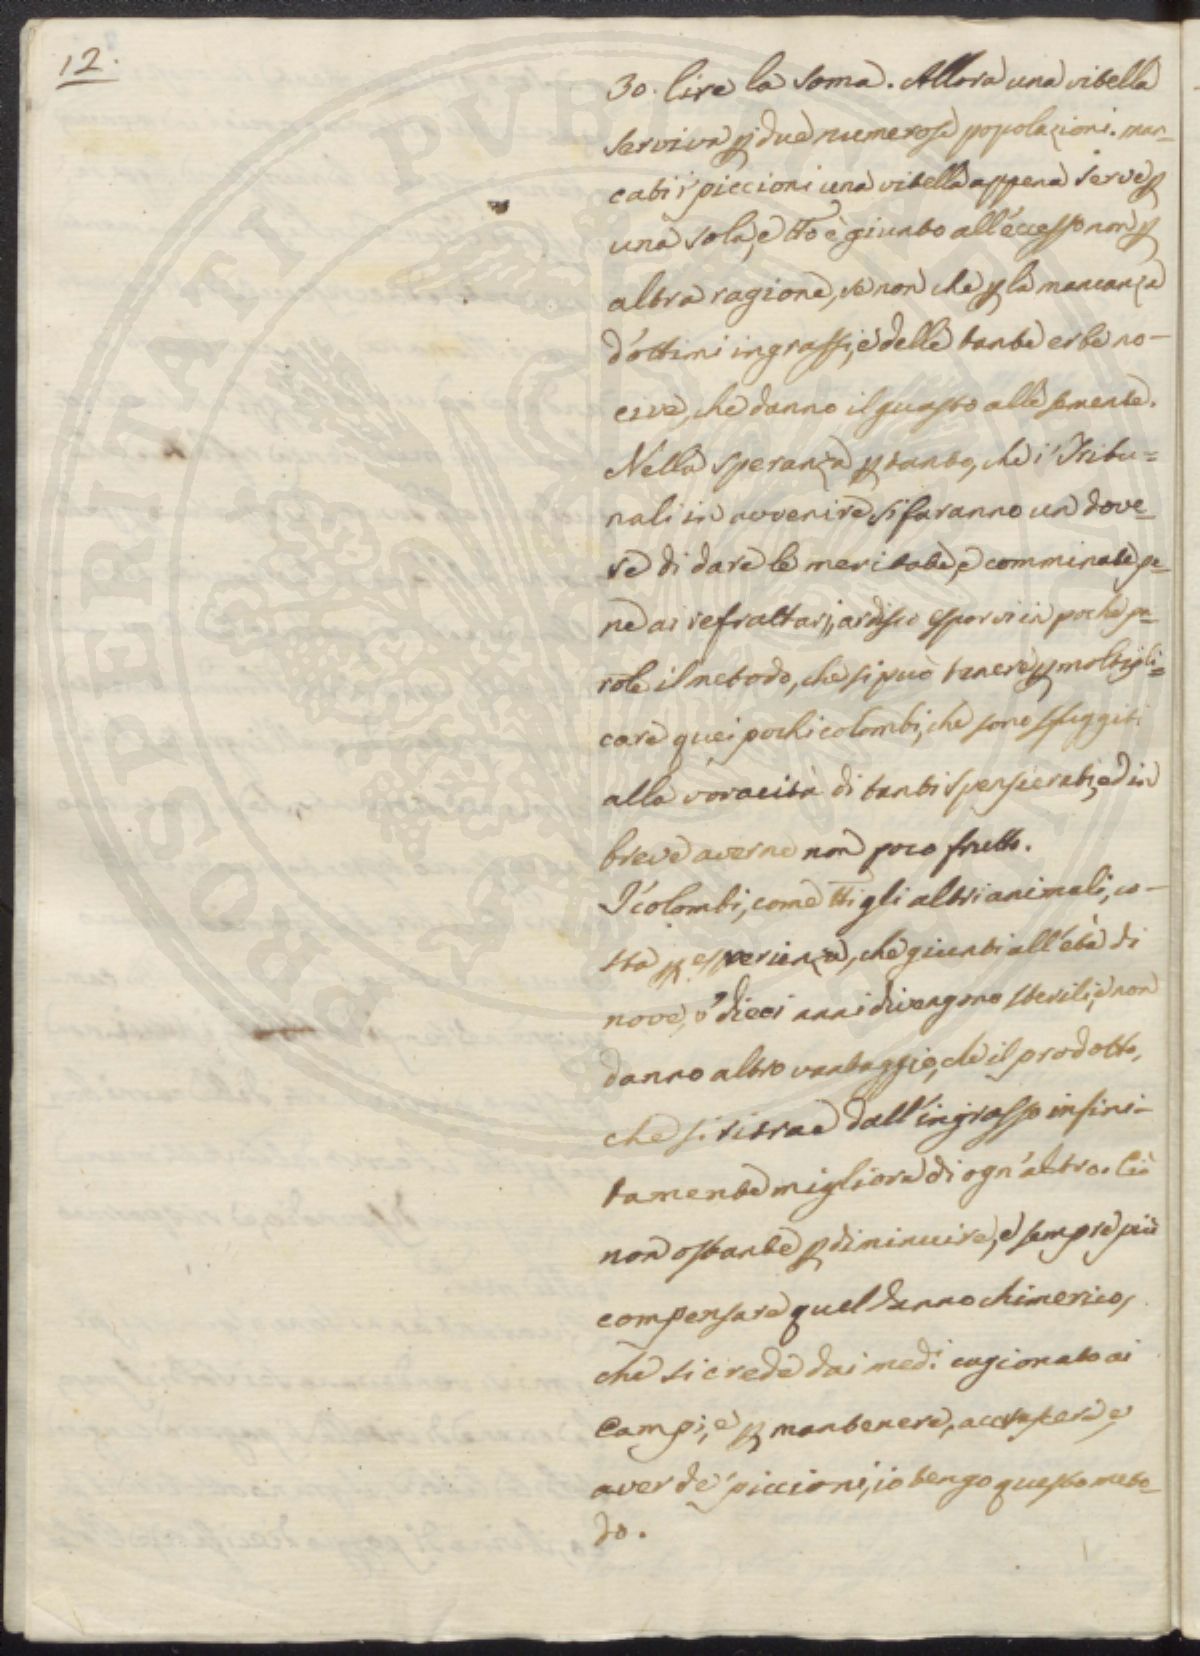 12.
30. lire la soma. Allora una vitella
serviva p due numerose popolazioni. man-
cati i piccioni una vitella appena serve p
una sola, e tto è giunto all'eccesso non p
altra ragione, se non che p la mancanza
d'ottimi ingrassi, e delle tante erbe no-
cive, che danno il guasto alle semente.
Nella speranza p tanto, che i Tribu=
nali in avvenire si faranno un dove-
re di dare le meritate, e comminate pe-
ne ai refrattarj, ardisco esporvi in poche pa-
role il metodo, che si può tenere p moltipli=
care quei pochi colombi, che sono sfuggiti
alla voracità di tanti spensierati, ed in
breve averne non poco frutto.
I colombi, come tti gli altri animali, co-
sta p esperienza, che giunti all'età di
nove, o dieci anni divengono sterili, e non
danno altro vantaggio, che il prodotto,
che si ritrae dall'ingrasso infini-
tamente migliore di ogn'altro. Ciò
non ostante p diminuire, e sempre più
compensare quel danno chimerico,
che si crede dai medi cagionato ai
Campi, e p mantenere, accrescere, e
aver de' piccioni, io tengo questo meto-
do.
PROSPERITATI PUBLICAE